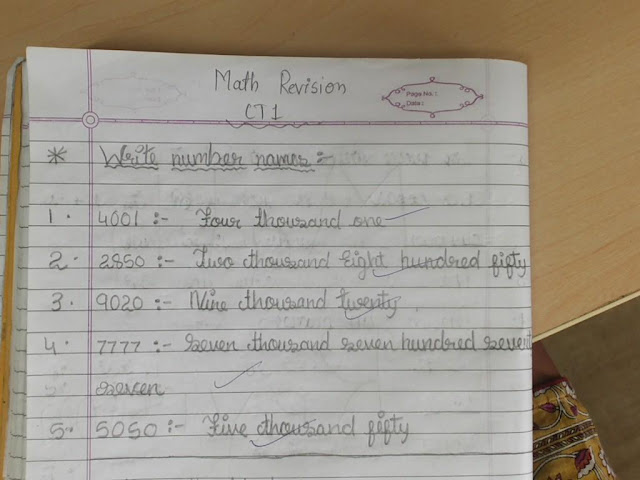 Math Revision
CT1
Page No. :
Date :
* Write number names :-
1. 4001 :- Four thousand one
2. 2850 :- Two thousand Eight hundred fifty
3. 9020 :- Nine thousand twenty
4. 7777 :- Seven thousand seven hundred sevent
seven
5. 5050 :- Five thousand fifty